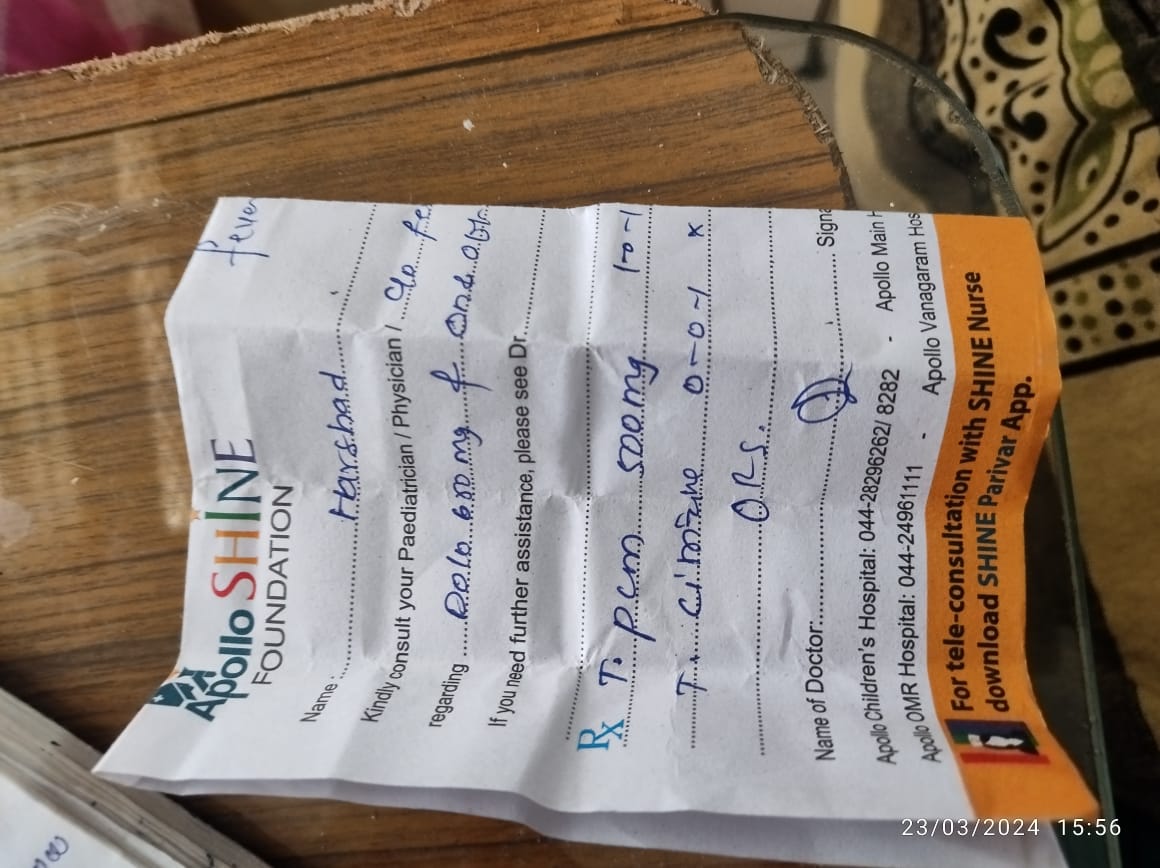 fever
Apollo SHINE
FOUNDATION
Name : Harshad
Kindly consult your Paediatrician / Physician / C/o fe
regarding Dolo 650 mg
If you need further assistance, please see Dr.
Rx T. Pcm 500mg 1-0-1
T. 0-0-1 x
ORS.
Name of Doctor: Signa
Apollo Children's Hospital: 044-28296262/ 8282 - Apollo Main H
Apollo OMR Hospital: 044-24961111 - Apollo Vanagaram Hos
For tele-consultation with SHINE Nurse
download SHINE Parivar App.
23/03/2024 15:56